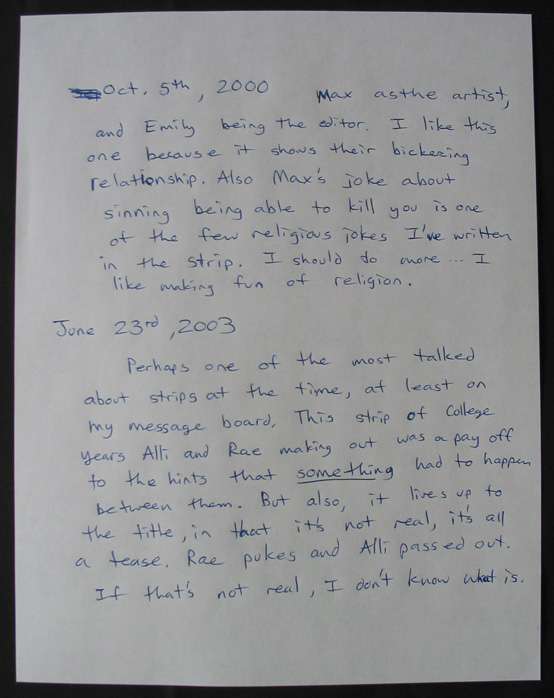 Oct. 5th, 2000 Max as the artist,
and Emily being the editor. I like this
one because it shows their bickering
relationship. Also Max's joke about
sinning being able to kill you is one
of the few religious jokes I've written
in the strip. I should do more... I
like making fun of religion.
June 23rd, 2003
Perhaps one of the most talked
about strips at the time, at least on
my message board. This strip of College
years Alli and Rae making out was a pay off
to the hints that something had to happen
between them. But also, it lives up to
the title, in that it's not real, it's all
a tease. Rae pukes and Alli passed out.
If that's not real, I don't know what is.